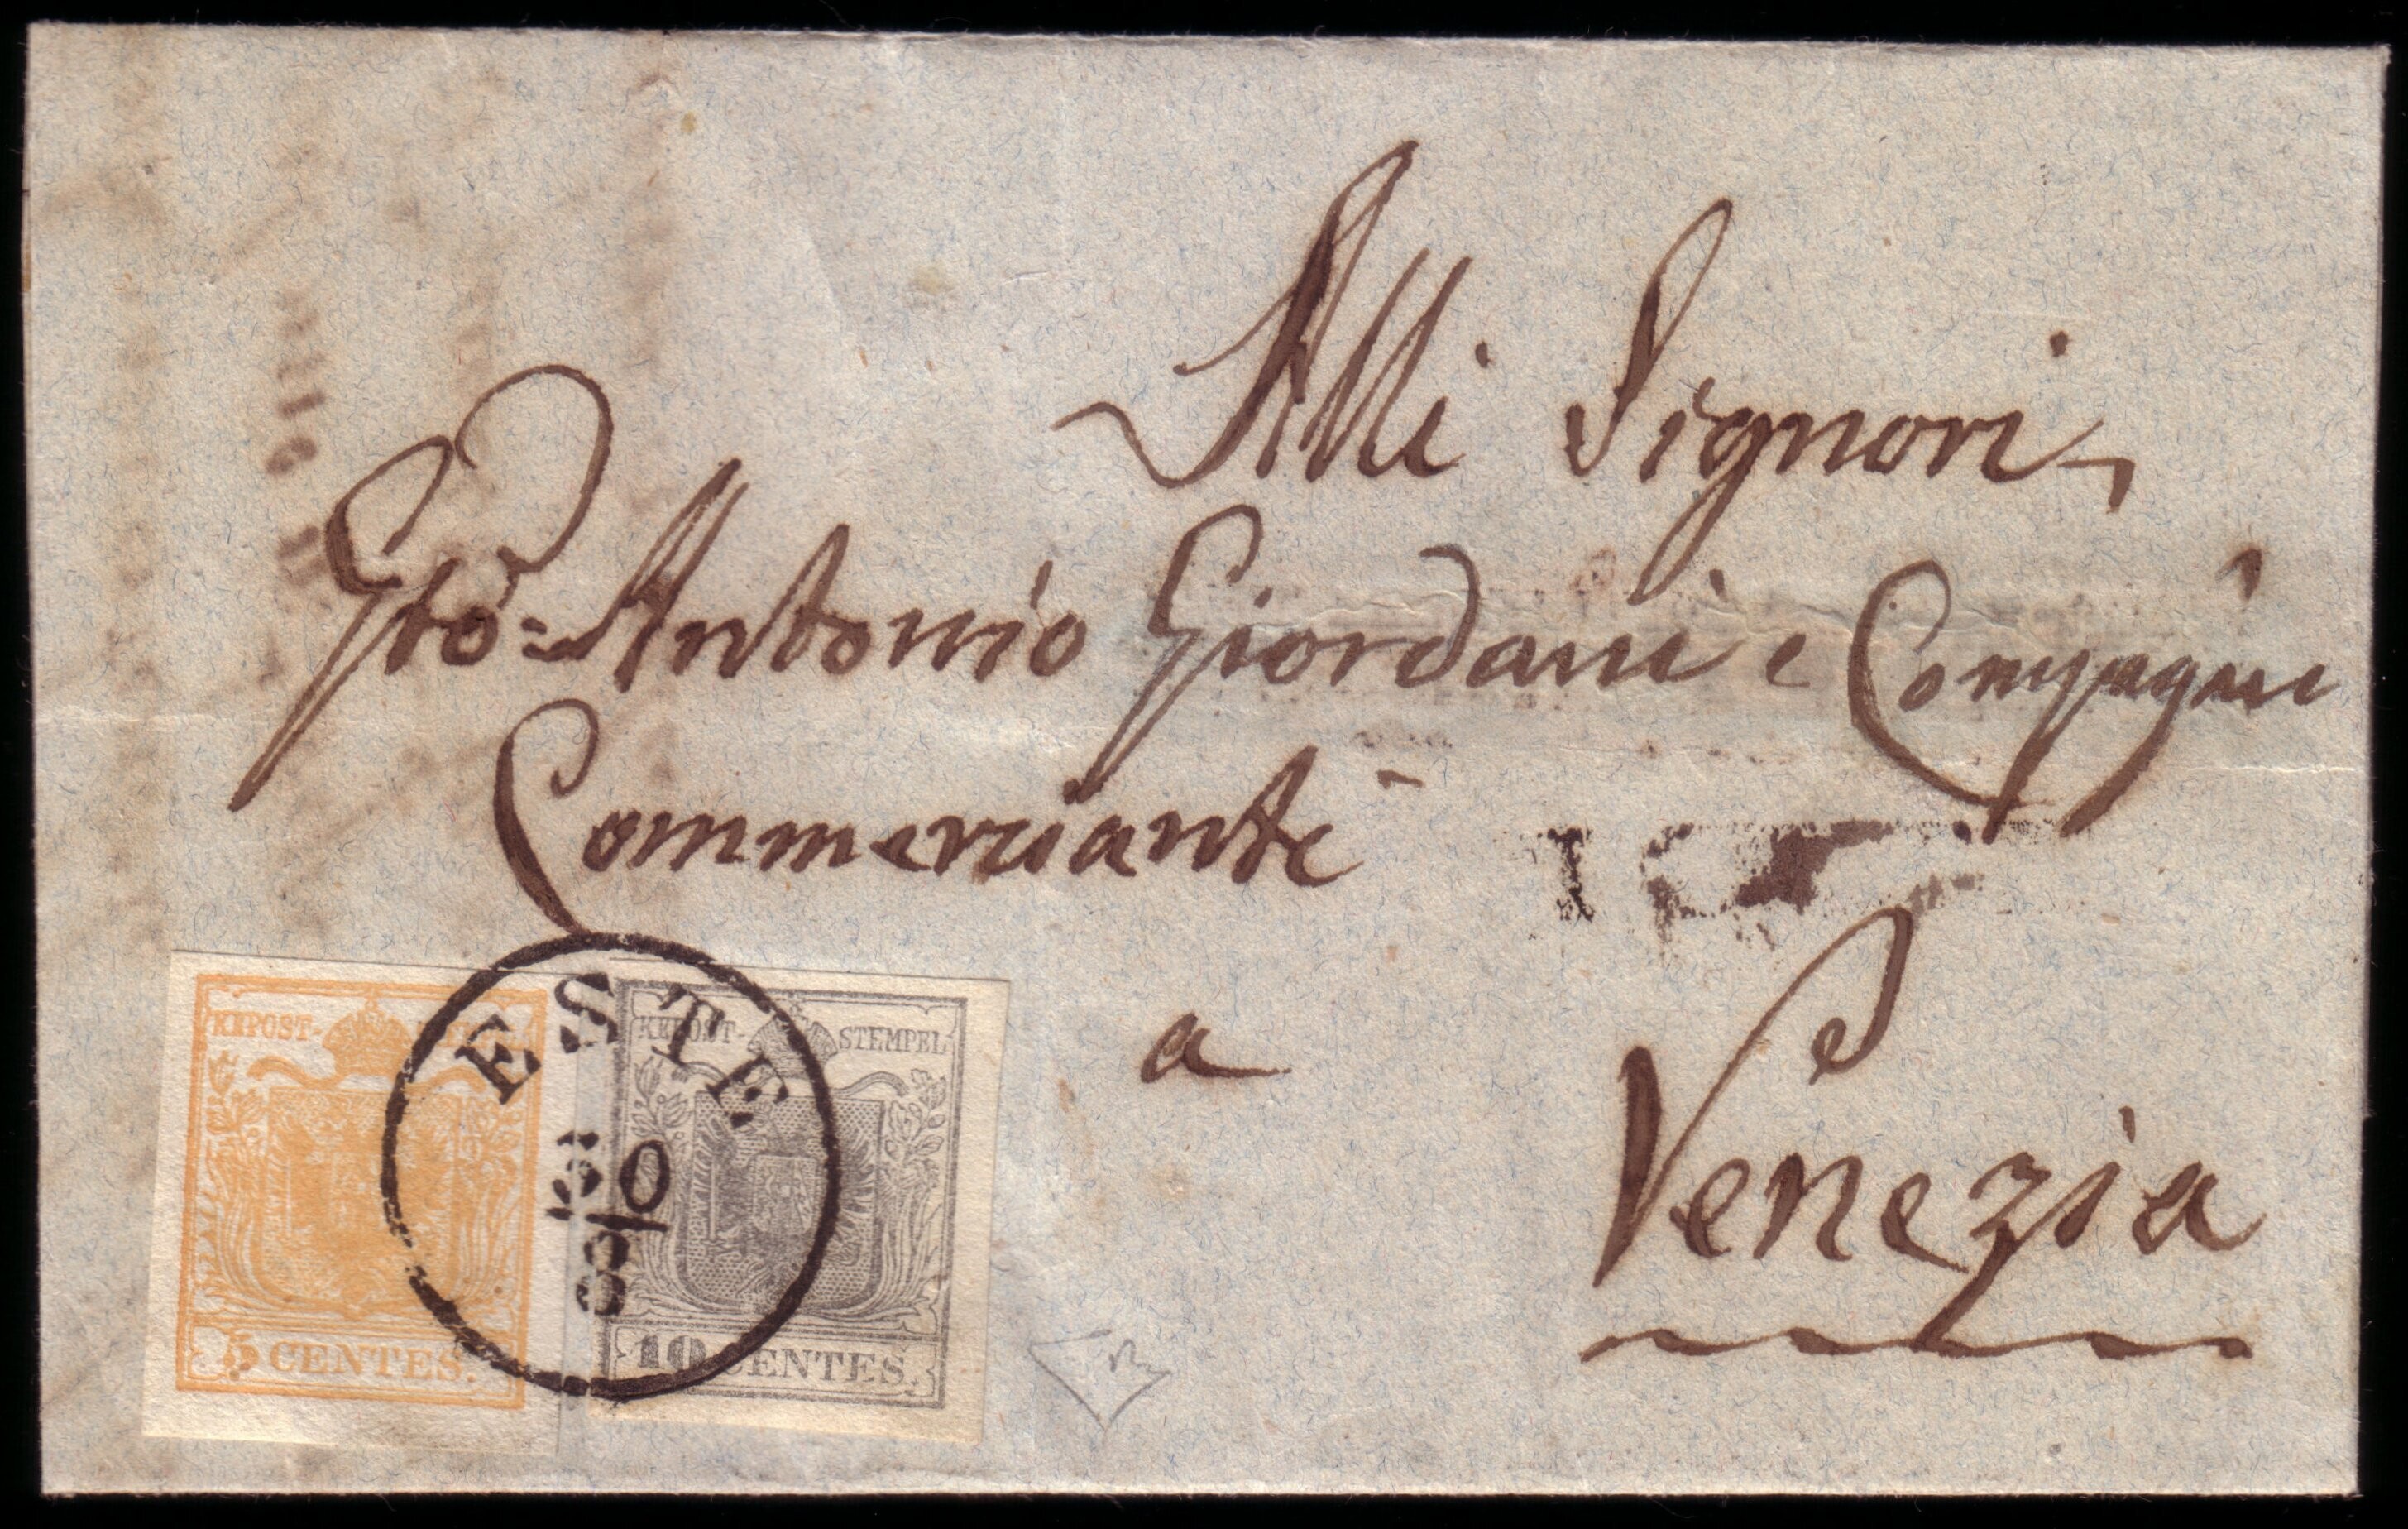 Alli Signori
Gio: Antonio Giordani e Compagni
Commercianti
a
Venezia
ESTE
KKPOST-
5 CENTES.
KKPOST-STEMPEL
10 CENTES.